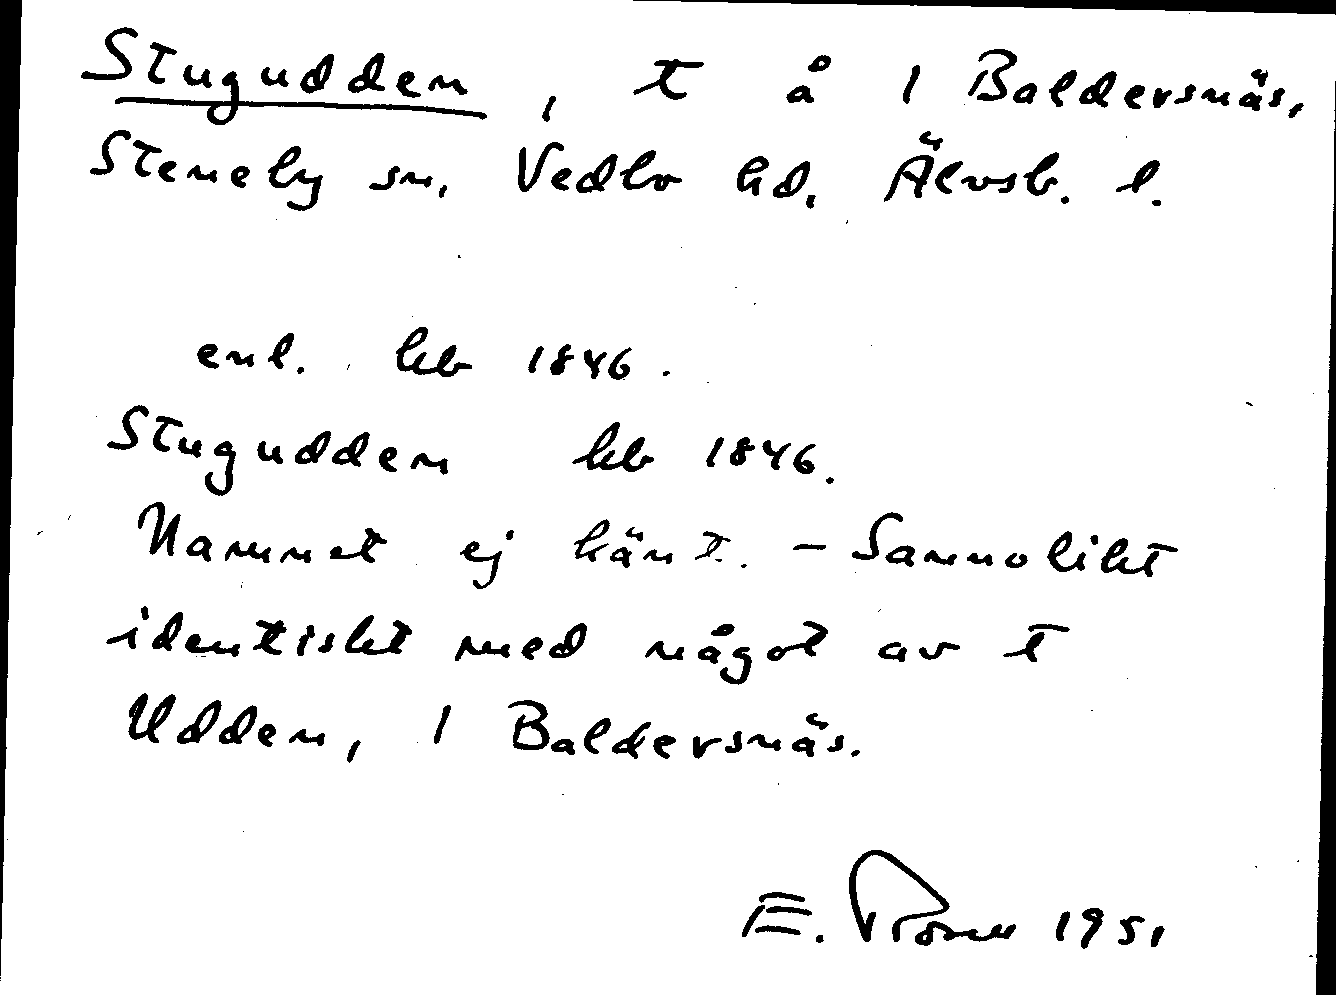 Stugudden, t å 1 Baldersnäs,
Steneby sn, Vedbo hd, Älvsb. l.
enl. kb 1846.
Stugudden kb 1846.
Namnet ej känt. - Sannolikt
identiskt med något av t
Udden, 1 Baldersnäs.
E. 1951